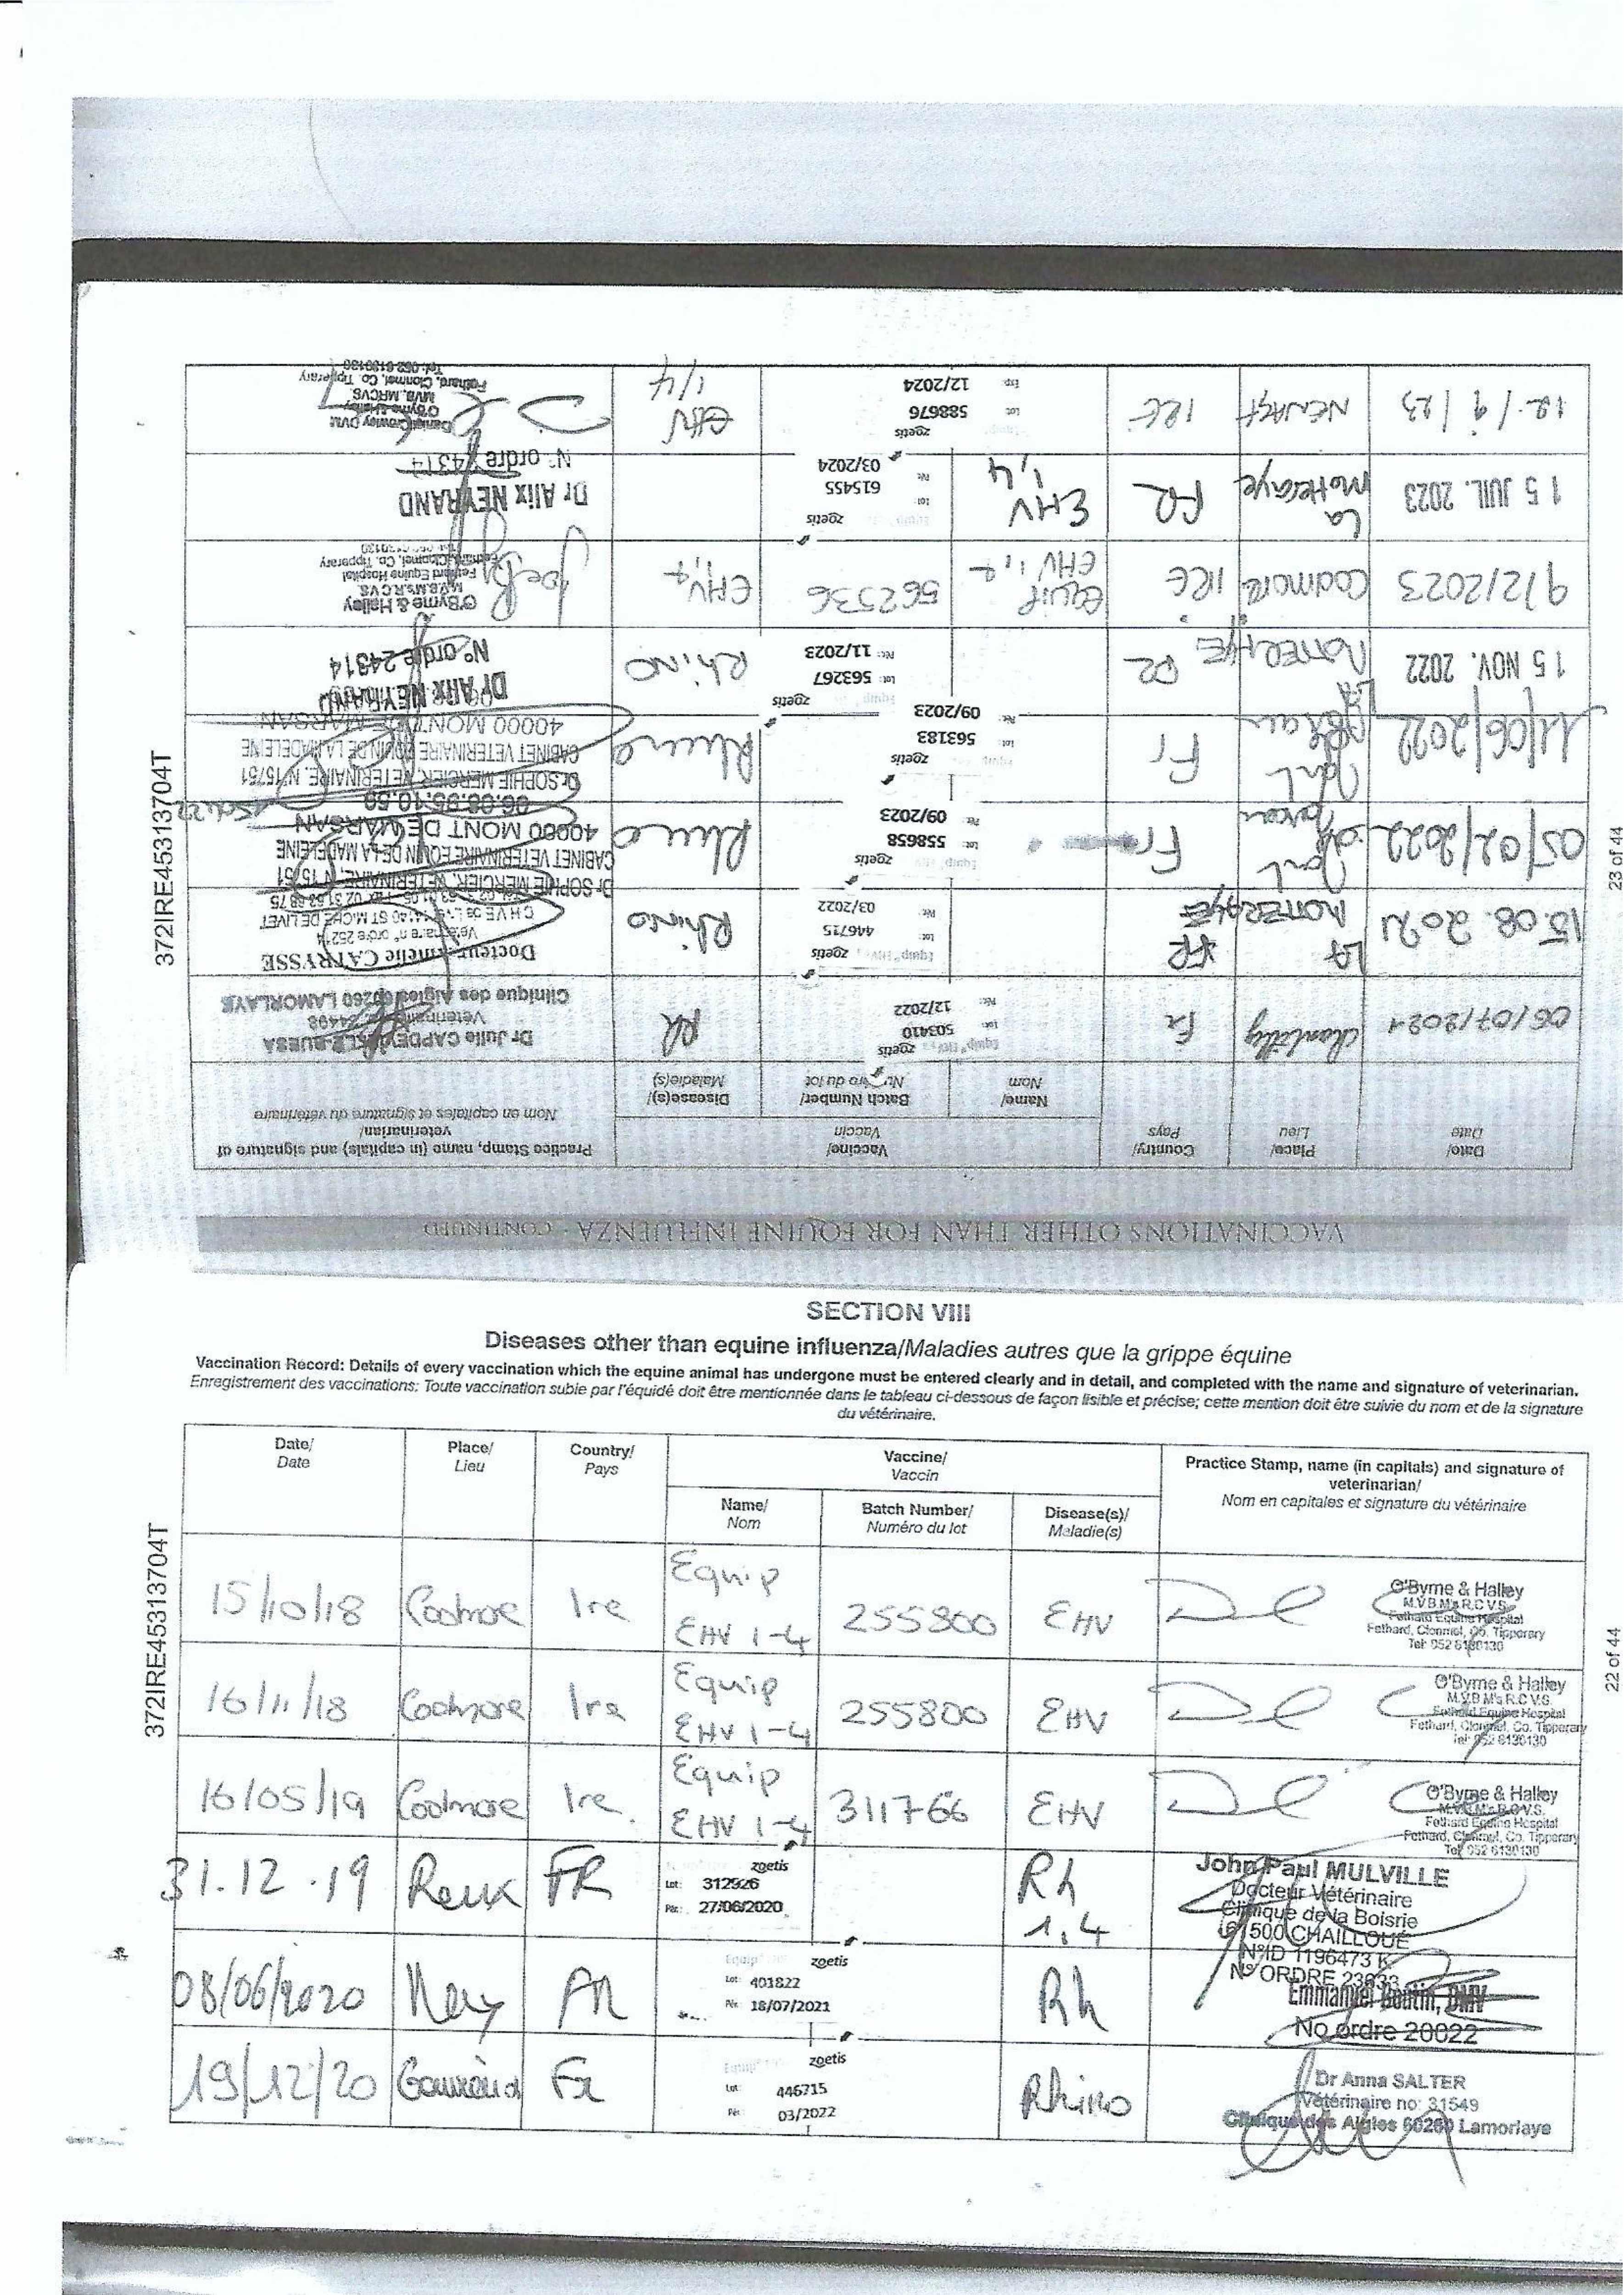 VACCINATIONS OTHER THAN FOR EQUINE INFLUENZA - CONTINUED
Date/ Place/ Country/ Vaccine/ Practice Stamp, name (in capitals) and signature of veterinarian/
Date Lieu Pays Vaccin Nom en capitales et signature du vétérinaire
Name/ Batch Number/ Disease(s)/
Nom Numéro du lot Maladie(s)
06/07/2021 Chantilly Fr zoetis Lot: 503410 Pér.: 12/2022 Rh Dr Julie Vétérinaire
Clinique des Aigles 60260 LAMORLAYE
15.08.2021 LA MOTTERAYE FR Equip zoetis Lot: 446715 Pér.: 03/2022 Rhino Docteur Amélie CATRYSSE
Vétérinaire n° ordre
14140 ST MICHEL DE LIVET
05/02/2022 Fr zoetis Lot: 558658 Pér.: 09/2023 Rhino Dr SOPHIE MERCIER, VETERINAIRE, N°15751
CABINET VETERINAIRE EQUIN DE LA MADELEINE
40000 MONT DE MARSAN
06.08.95.10.59
11/06/2022 Fr zoetis Lot: 563183 Pér.: 09/2023 Rhino Dr SOPHIE MERCIER, VETERINAIRE, N°15751
CABINET VETERINAIRE EQUIN DE LA MADELEINE
40000 MONT DE MARSAN
15 NOV. 2022 LA MOTTERAYE FR Equip zoetis Lot: 563267 Pér.: 11/2023 Rhino Dr Alix NEYRAND
N° ordre 24314
9/2/2023 Coolmore IRE EQUIP EHV 1,4 562536 EHV1,4 O'Byrne & Halley
M.V.B.M's R.C.V.S.
Fethard Equine Hospital
Fethard, Clonmel, Co. Tipperary
15 JUIL. 2023 La Motteraye FR EHV 1,4 zoetis Lot 615455 Pér. 03/2024 Dr Alix NEYRAND
N° ordre 24314
12/9/23 NENAGH IRE zoetis Lot: 588676 Exp 12/2024 EHV 1/4 Daniel Crowley DVM
O'Byrne & Halley
MVB, MRCVS
Fethard, Clonmel, Co. Tipperary
Tel: 052 6130130
372IRE45313704T
23 of 44
SECTION VIII
Diseases other than equine influenza/Maladies autres que la grippe équine
Vaccination Record: Details of every vaccination which the equine animal has undergone must be entered clearly and in detail, and completed with the name and signature of veterinarian.
Enregistrement des vaccinations: Toute vaccination subie par l'équidé doit être mentionnée dans le tableau ci-dessous de façon lisible et précise; cette mention doit être suivie du nom et de la signature
du vétérinaire.
Date/ Place/ Country/ Vaccine/ Practice Stamp, name (in capitals) and signature of veterinarian/
Date Lieu Pays Vaccin Nom en capitales et signature du vétérinaire
Name/ Batch Number/ Disease(s)/
Nom Numéro du lot Maladie(s)
15/10/18 Coolmore Ire Equip EHV 1-4 255800 EHV O'Byrne & Halley
M.V.B.M's R.C.V.S.
Fethard Equine Hospital
Fethard, Clonmel, Co. Tipperary
Tel: 052 6130130
16/11/18 Coolmore Ire Equip EHV 1-4 255800 EHV O'Byrne & Halley
M.V.B.M's R.C.V.S.
Fethard Equine Hospital
Fethard, Clonmel, Co. Tipperary
Tel: 052 6130130
16/05/19 Coolmore Ire. Equip EHV 1-4 311766 EHV O'Byrne & Halley
M.V.B.M's R.C.V.S.
Fethard Equine Hospital
Fethard, Clonmel, Co. Tipperary
Tel: 052 6130130
31.12.19 Reux FR zoetis Lot: 312926 Pér.: 27/06/2020 Rh 1.4 John Paul MULVILLE
Docteur Vétérinaire
Clinique de la Boisrie
61500 CHAILLOUÉ
N°ID 1196473 K
N° ORDRE 23633
08/06/2020 FR Equip zoetis Lot: 401822 Pér. 18/07/2021 Rh Emmanuel Boutin, DMV
No ordre 20022
19/12/20 Gouvieux Fr Equip zoetis Lot: 446715 Pér. 03/2022 Rhino Dr Anna SALTER
Vétérinaire no: 31549
Clinique des Aigles 60260 Lamorlaye
372IRE45313704T
22 of 44